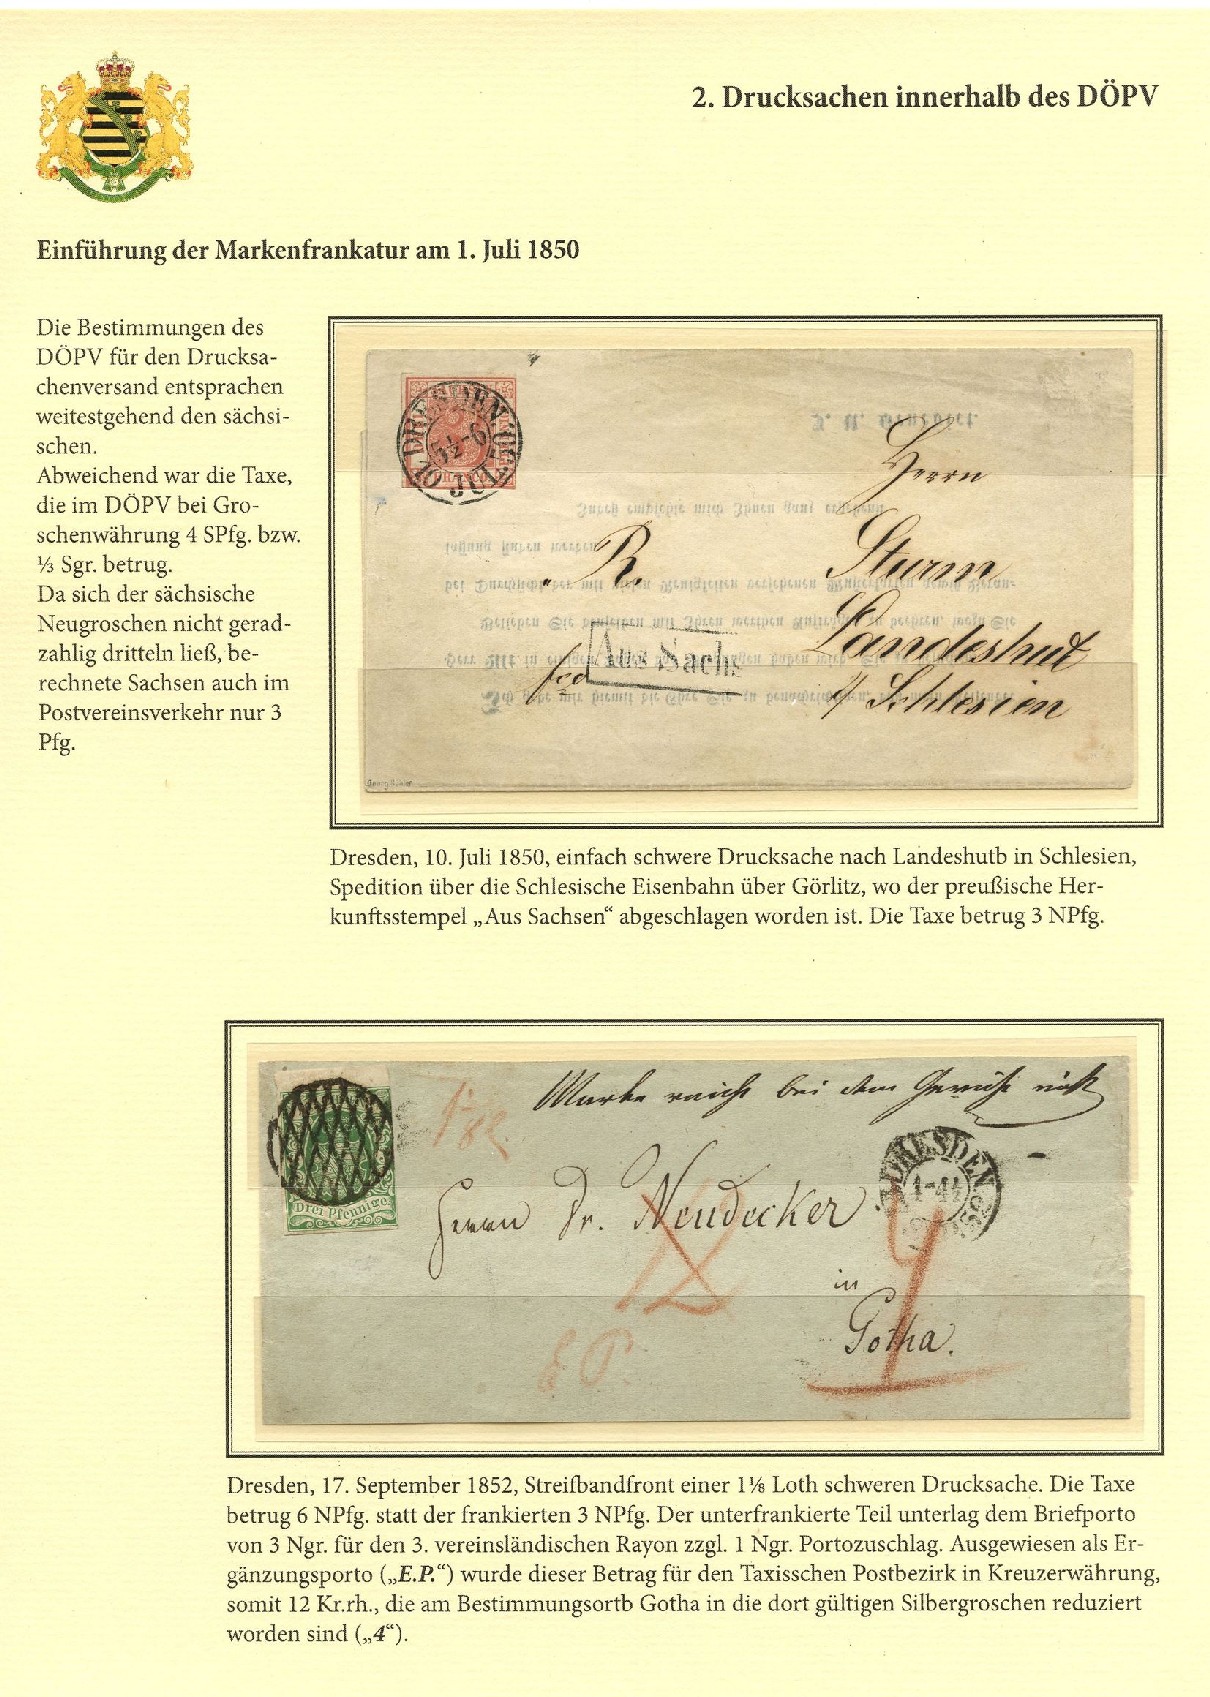 2. Drucksachen innerhalb des DÖPV
Einführung der Markenfrankatur am 1. Juli 1850
Die Bestimmungen des
DÖPV für den Drucksa-
chenversand entsprachen
weitestgehend den sächsi-
schen.
Abweichend war die Taxe,
die im DÖPV bei Gro-
schenwährung 4 SPfg. bzw.
⅓ Sgr. betrug.
Da sich der sächsische
Neugroschen nicht gerad-
zahlig dritteln ließ, be-
rechnete Sachsen auch im
Postvereinsverkehr nur 3
Pfg.
DRESDEN
5½-6
10 JUL 50
Herrn
R. Sturm
Landeshut
Aus Sachs
fco
Schlesien
Dresden, 10. Juli 1850, einfach schwere Drucksache nach Landeshutb in Schlesien,
Spedition über die Schlesische Eisenbahn über Görlitz, wo der preußische Her-
kunftsstempel „Aus Sachsen“ abgeschlagen worden ist. Die Taxe betrug 3 NPfg.
Marke reicht bei dem Gewicht nicht
DRESDEN
Drei Pfennige
Herrn Dr. Neudecker
12
4
in
Gotha.
E.P.
Dresden, 17. September 1852, Streifbandfront einer 1⅛ Loth schweren Drucksache. Die Taxe
betrug 6 NPfg. statt der frankierten 3 NPfg. Der unterfrankierte Teil unterlag dem Briefporto
von 3 Ngr. für den 3. vereinsländischen Rayon zzgl. 1 Ngr. Portozuschlag. Ausgewiesen als Er-
gänzungsporto („E.P.“) wurde dieser Betrag für den Taxisschen Postbezirk in Kreuzerwährung,
somit 12 Kr.rh., die am Bestimmungsortb Gotha in die dort gültigen Silbergroschen reduziert
worden sind („4“).